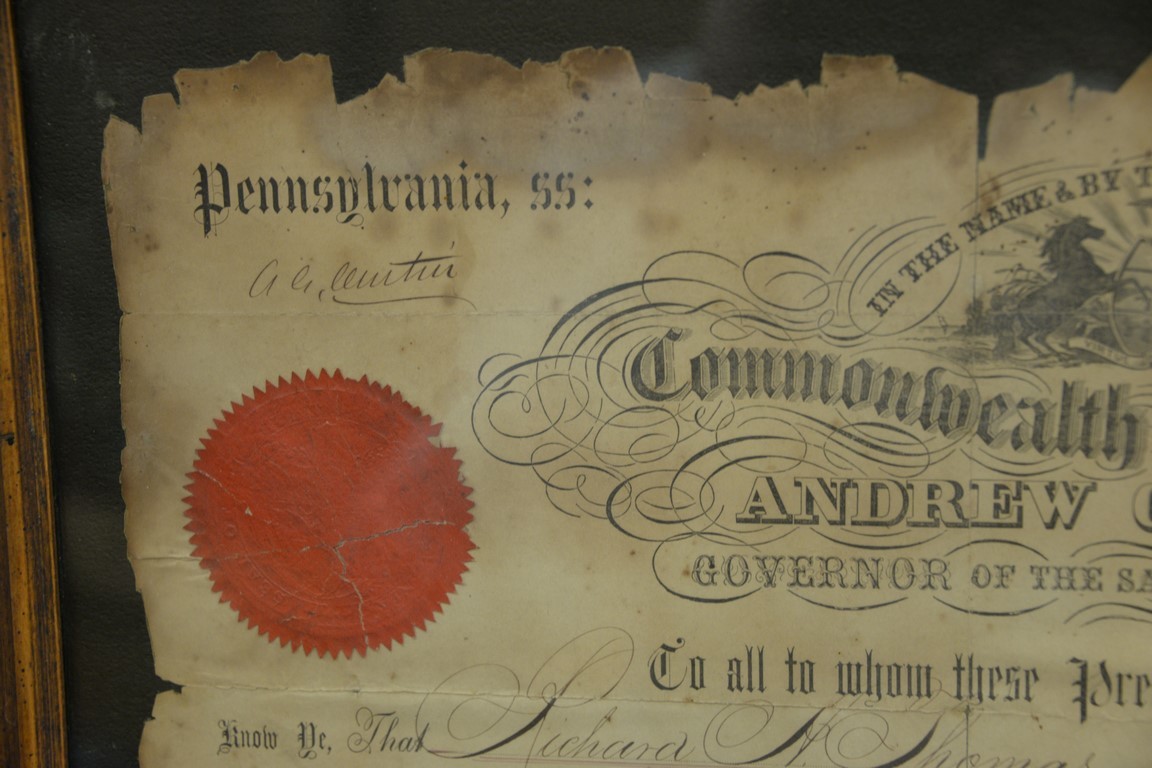 Pennsylvania, ss:
A G Curtin
IN THE NAME & BY T
Commonwealth
ANDREW
GOVERNOR OF THE SA
To all to whom these Pre
Know Ye, That Richard H. Thomas